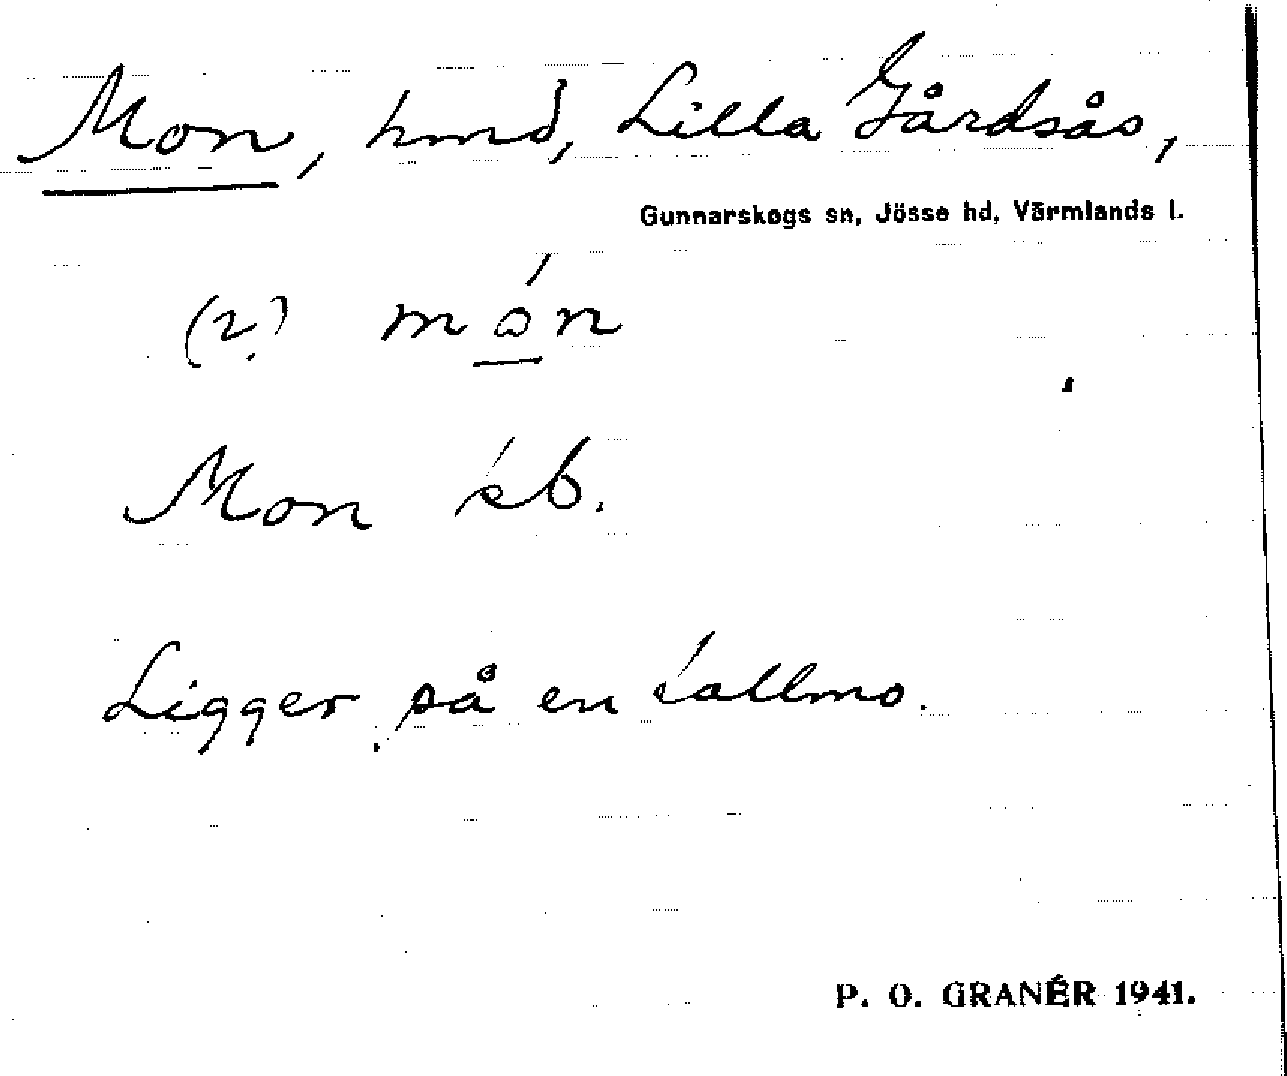 Mon, hmd, Lilla Gårdsås,
Gunnarskogs sn, Jösse hd, Värmlands l.
(2) món
Mon
Ligger på en tallmo.
P. O. GRANÉR 1941.